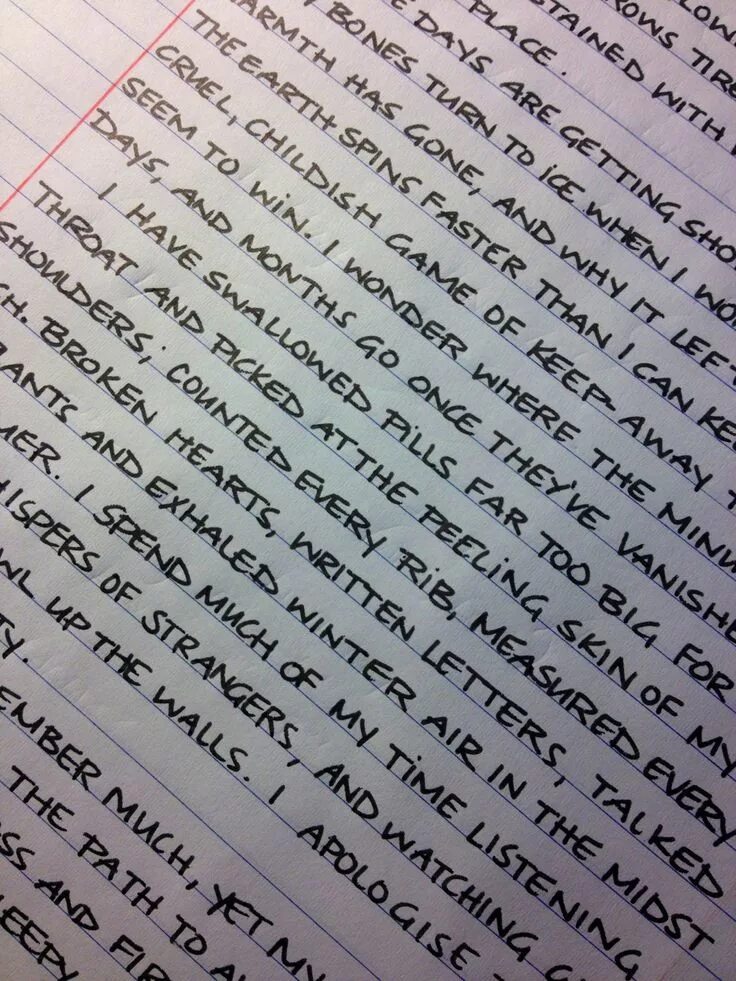 ROWS TIRE
STAINED WITH
PLACE.
DAYS ARE GETTING SHO
BONES TURN TO ICE WHEN I WO
ARMTH HAS GONE, AND WHY IT LEFT
THE EARTH SPINS FASTER THAN I CAN KEE
CRUEL, CHILDISH GAME OF KEEP-AWAY T
SEEM TO WIN. I WONDER WHERE THE MINU
DAYS, AND MONTHS GO ONCE THEY'VE VANISHE
I HAVE SWALLOWED PILLS FAR TOO BIG FOR
THROAT AND PICKED AT THE PEELING SKIN OF MY
SHOULDERS; COUNTED EVERY RIB, MEASURED EVERY
CH. BROKEN HEARTS, WRITTEN LETTERS, TALKED
LANTS AND EXHALED WINTER AIR IN THE MIDST
MER. I SPEND MUCH OF MY TIME LISTENING
HISPERS OF STRANGERS, AND WATCHING
WL UP THE WALLS. I APOLOGISE
TY.
EMBER MUCH, YET MY
THE PATH TO A
SS AND FIR
LEEPY